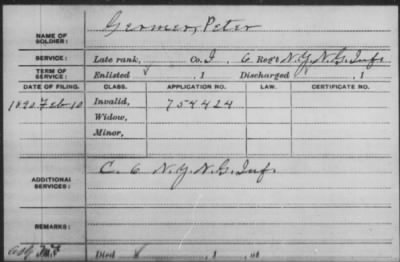 NAME OF SOLDIER: Germer, Peter
SERVICE: Late rank, Co. I, 6 Reg't N.Y.N.G. Inf.
TERM OF SERVICE: Enlisted , 1 Discharged , 1
DATE OF FILING. CLASS. APPLICATION NO. LAW. CERTIFICATE NO.
1890 Feb 10 Invalid, 754424
Widow,
Minor,
ADDITIONAL SERVICES: C. 6 N.Y.N.G. Inf.
REMARKS:
Died , 1 , at